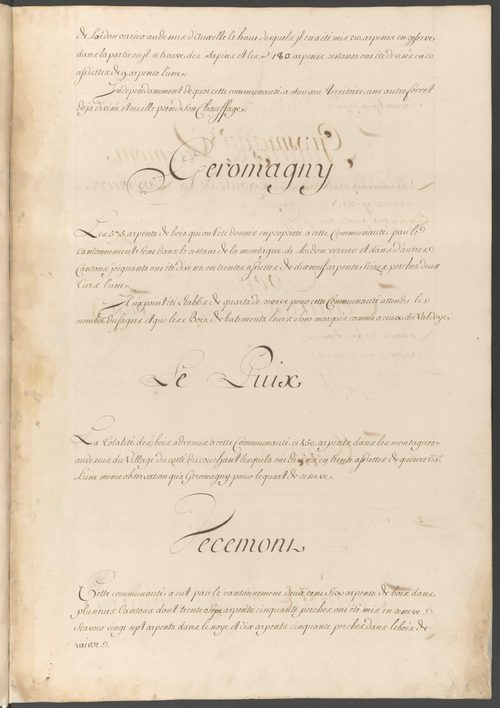 de Loidon verrier au dessus d'Auxelle le haut desquels il en a été mis 20 arpents en reserve
dans la partie ou il se trouve des sapins et les 180 arpents restants ont été divisés en 20
assiettes de 9 arpents l'une.
Independamment de quoi cette communauté a sur son territoire une autre forret
deja divisée et ou elle prend son Chauffage.
Geromagny
Les 575 arpents de bois qui ont été donnés en propriété a cette Communauté par le
Cantonnement sont dans le restant de la montagne de Loidon verrier et dans d'autres
Cantons joignants ont été divisés en trente assiettes de dixneuf arpents seize perches deux
tiers l'une.
Il n'a point été établi de quart de reserve pour cette Communauté attendu le
nombre d'usagers et que les Bois de batiments leurs sont marqués comme a ceux du Valdoye
Le Puix
La totalité des bois advenus a cette Communauté est 450 arpents dans les montagnes
au dessus du Village du costé du couchant lesquels ont divisés en trente assiettes de quinze
l'une meme observation qu'a Geromagny pour le quart de reserve.
Vecemont
Cette communauté a eut par le cantonnement deux cens six arpents de bois dans
plusieurs Cantons dont trente sept arpents cinquante perches ont été mis en reserve
scavoir vingt sept arpents dans le noye et dix arpents cinquante perches dans le bois de
vaivre.